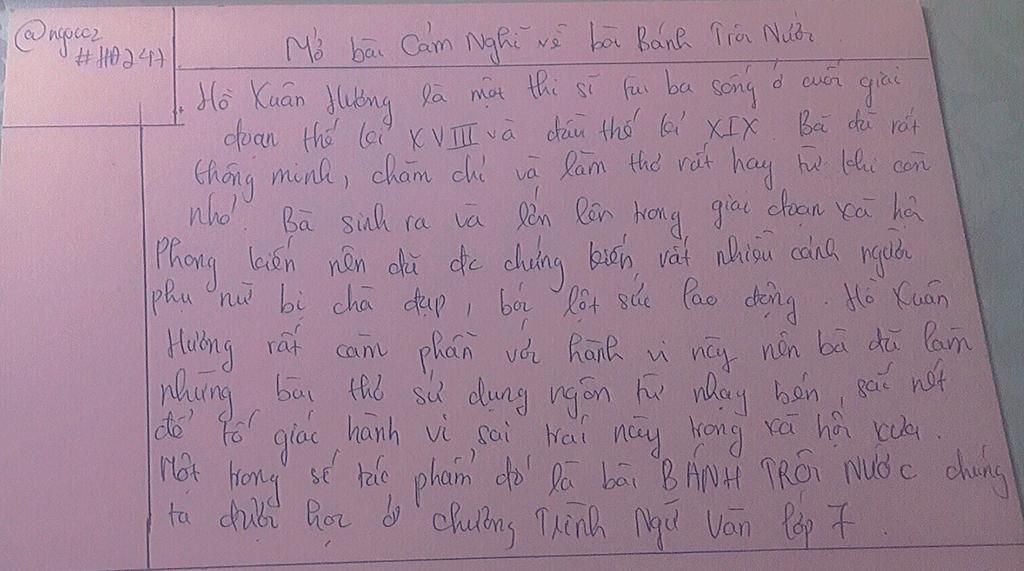 @ngocc2
#HĐ247
Mở bài Cảm Nghĩ về bài Bánh Trôi Nước
Hồ Xuân Hương là một thi sĩ tài ba sống ở cuối giai
đoạn thế kỉ XVIII và đầu thế kỉ XIX. Bà đã rất
thông minh, chăm chỉ và làm thơ rất hay từ khi còn
nhỏ. Bà sinh ra và lớn lên trong giai đoạn xã hội
Phong kiến nên đã đc chứng kiến rất nhiều cảnh người
phụ nữ bị chà đạp, bóc lột sức lao động. Hồ Xuân
Hương rất căm phẫn với hành vi này nên bà đã làm
những bài thơ sử dụng ngôn từ nhạy bén, sắc nét
để tố giác hành vi sai trái này trong xã hội xưa.
Một trong số tác phẩm đó là bài BÁNH TRÔI NƯỚC chúng
ta được học ở chương Trình Ngữ Văn lớp 7.